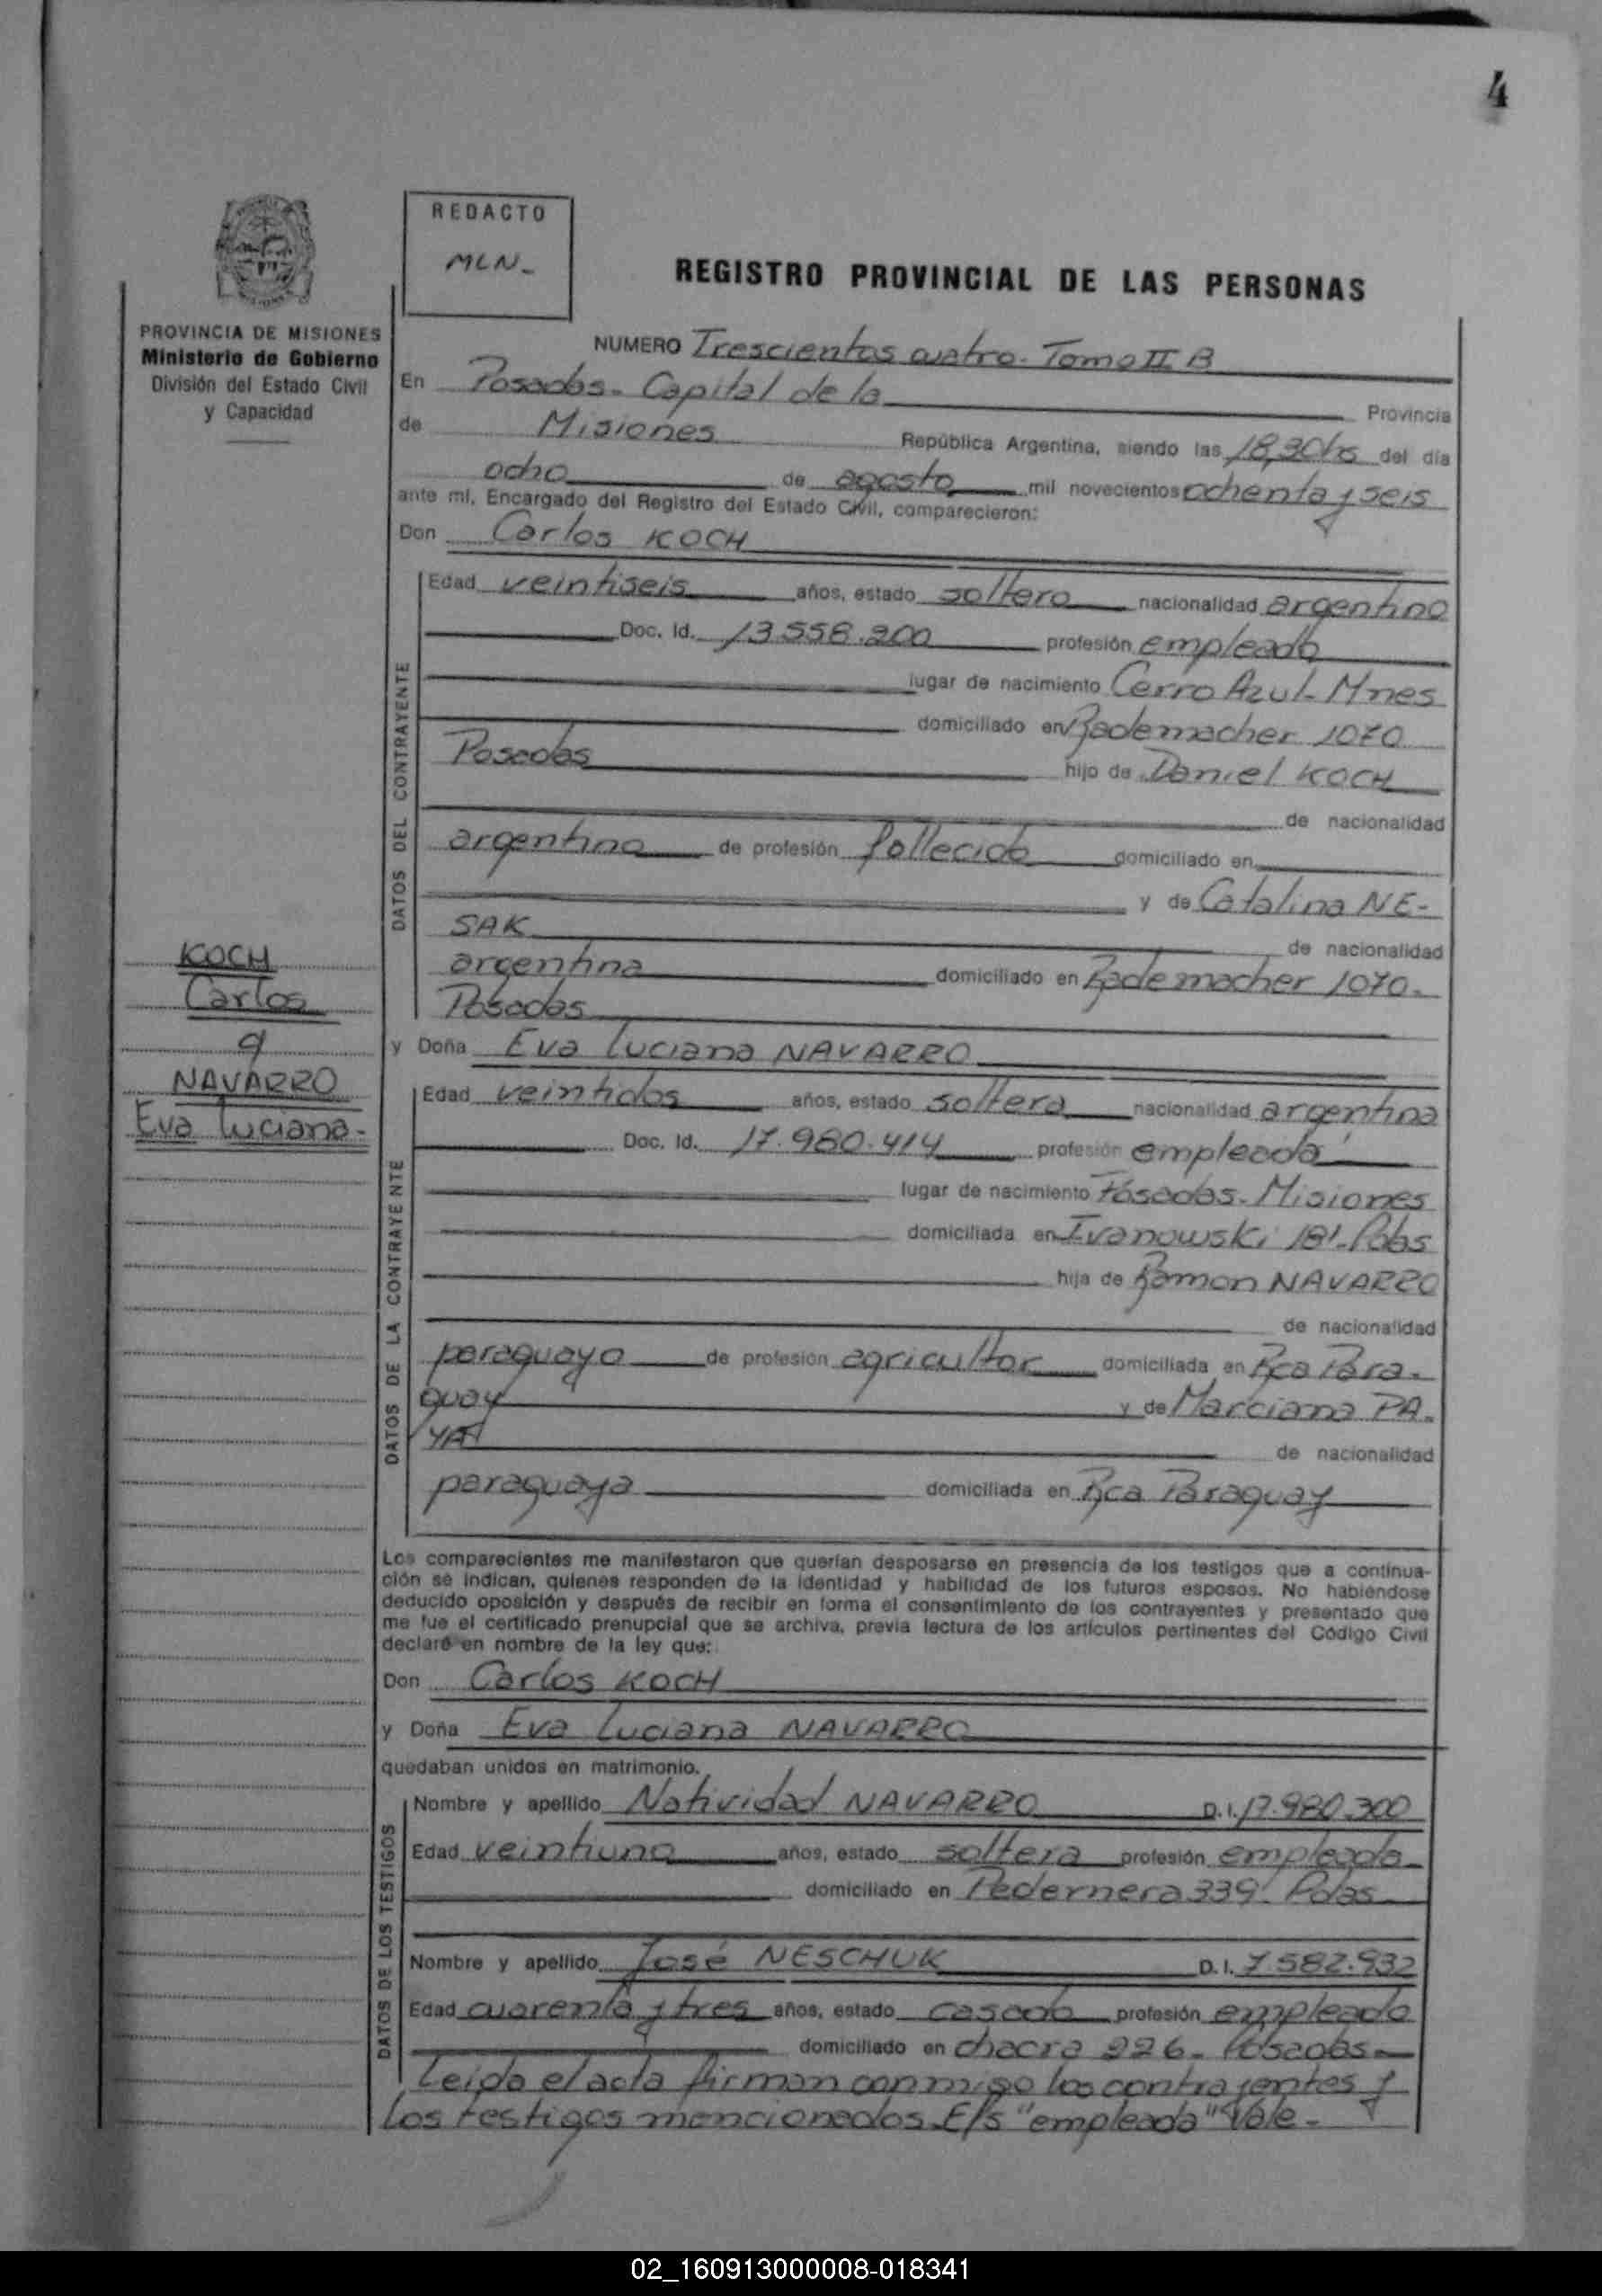 4
REDACTO
MLN-
REGISTRO PROVINCIAL DE LAS PERSONAS
PROVINCIA DE MISIONES
Ministerio de Gobierno
División del Estado Civil
y Capacidad
NUMERO Trescientos cuatro- Tomo II B
En Posadas- Capital de la Provincia
de Misiones República Argentina, siendo las 18,30hs del día
ocho de agosto mil novecientos ochenta y seis
ante mí, Encargado del Registro del Estado Civil, comparecieron:
Don Carlos KOCH
DATOS DEL CONTRAYENTE
Edad veintiseis años, estado soltero nacionalidad argentino
Doc. Id. 13.556.200 profesión empleado
lugar de nacimiento Cerro Azul- Mnes
domiciliado en Rademacher 1070
Posadas hijo de Daniel KOCH
de nacionalidad
argentino de profesión fallecido domiciliado en
y de Catalina NE-
SAK de nacionalidad
argentina domiciliado en Rademacher 1070-
Posadas
KOCH
Carlos
y
NAVARRO
Eva Luciana-
y Doña Eva Luciana NAVARRO
DATOS DE LA CONTRAYENTE
Edad veintidos años, estado soltera nacionalidad argentina
Doc. Id. 17.980.414 profesión empleada
lugar de nacimiento Posadas- Misiones
domiciliada en Ivanowski 181-Pdas
hija de Ramon NAVARRO
de nacionalidad
paraguayo de profesión agricultor domiciliada en Rca Para-
guay y de Marciana PA-
YA de nacionalidad
paraguaya domiciliada en Rca Paraguay
Los comparecientes me manifestaron que querían desposarse en presencia de los testigos que a continua-
ción se indican, quienes responden de la identidad y habilidad de los futuros esposos. No habiéndose
deducido oposición y después de recibir en forma el consentimiento de los contrayentes y presentado que
me fue el certificado prenupcial que se archiva, previa lectura de los artículos pertinentes del Código Civil
declaré en nombre de la ley que:
Don Carlos KOCH
y Doña Eva Luciana NAVARRO
quedaban unidos en matrimonio.
DATOS DE LOS TESTIGOS
Nombre y apellido Natividad NAVARRO D.I. 17.980.300
Edad veintiuno años, estado soltera profesión empleada
domiciliado en Pedernera 339- Pdas
Nombre y apellido José NESCHUK D.I. 7.582.932
Edad cuarenta y tres años, estado casado profesión empleado
domiciliado en chacra 226- Posadas-
Leida el acta firman conmigo los contrayentes y
los testigos mencionados.E/s "empleada" Vale-
02_160913000008-018341